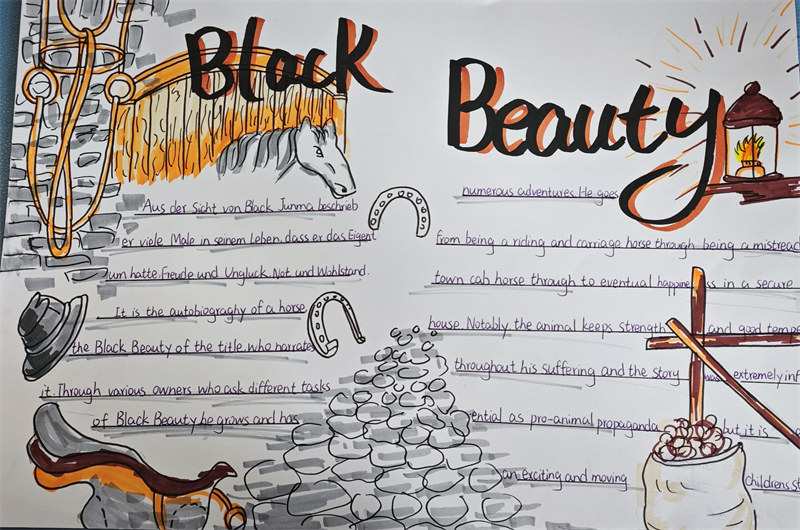 Black Beauty
Aus der Sicht von Black Junma beschrieb
er viele Male in seinem Leben. dass er das Eigent
um hatte. Freude und Ungluck. Not und Wohlstand.
It is the autobiograghy of a horse
the Black Beauty of the title. who narrates
it. Through various owners who ask different tasks
of Black Beauty he grows and has
numerous adventures. He goes
from being a riding and carriage horse through being a mistreac
town cab horse through to eventual happiness in a secure
house. Notably. the animal keeps strength and good tempe
throughout his suffering and the story was extremely inf
ential as pro-animal propaganda but it is
an exciting and moving childrens st